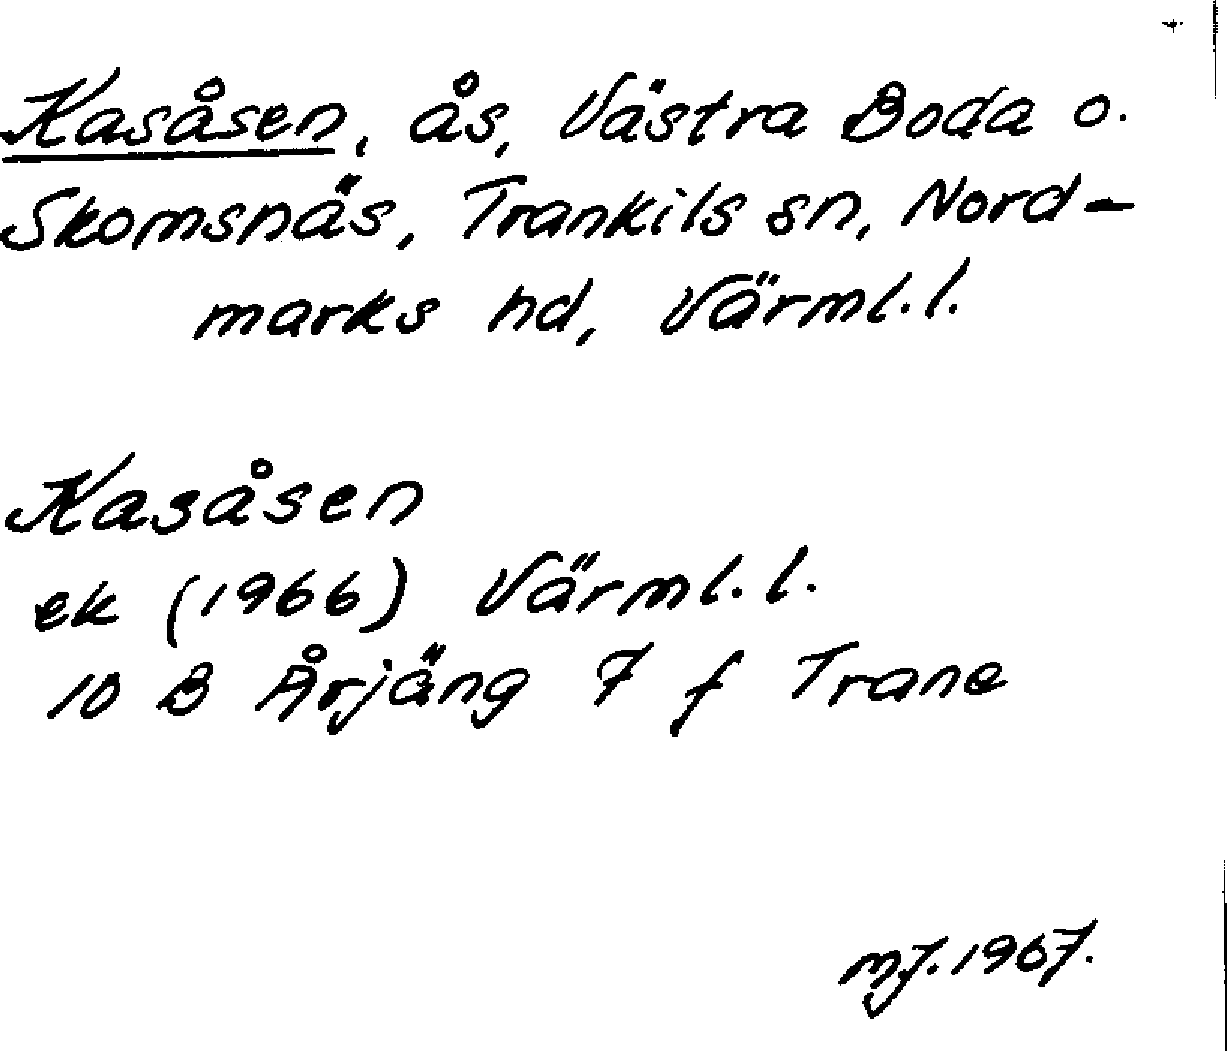 Kasåsen, ås, Västra Boda o.
Skomsnäs, Trankils sn, Nord-
marks hd, Värml.l.
Kasåsen
ek (1966) Värml.l.
10 B Årjäng 7 f Trane
MJ. 1967.